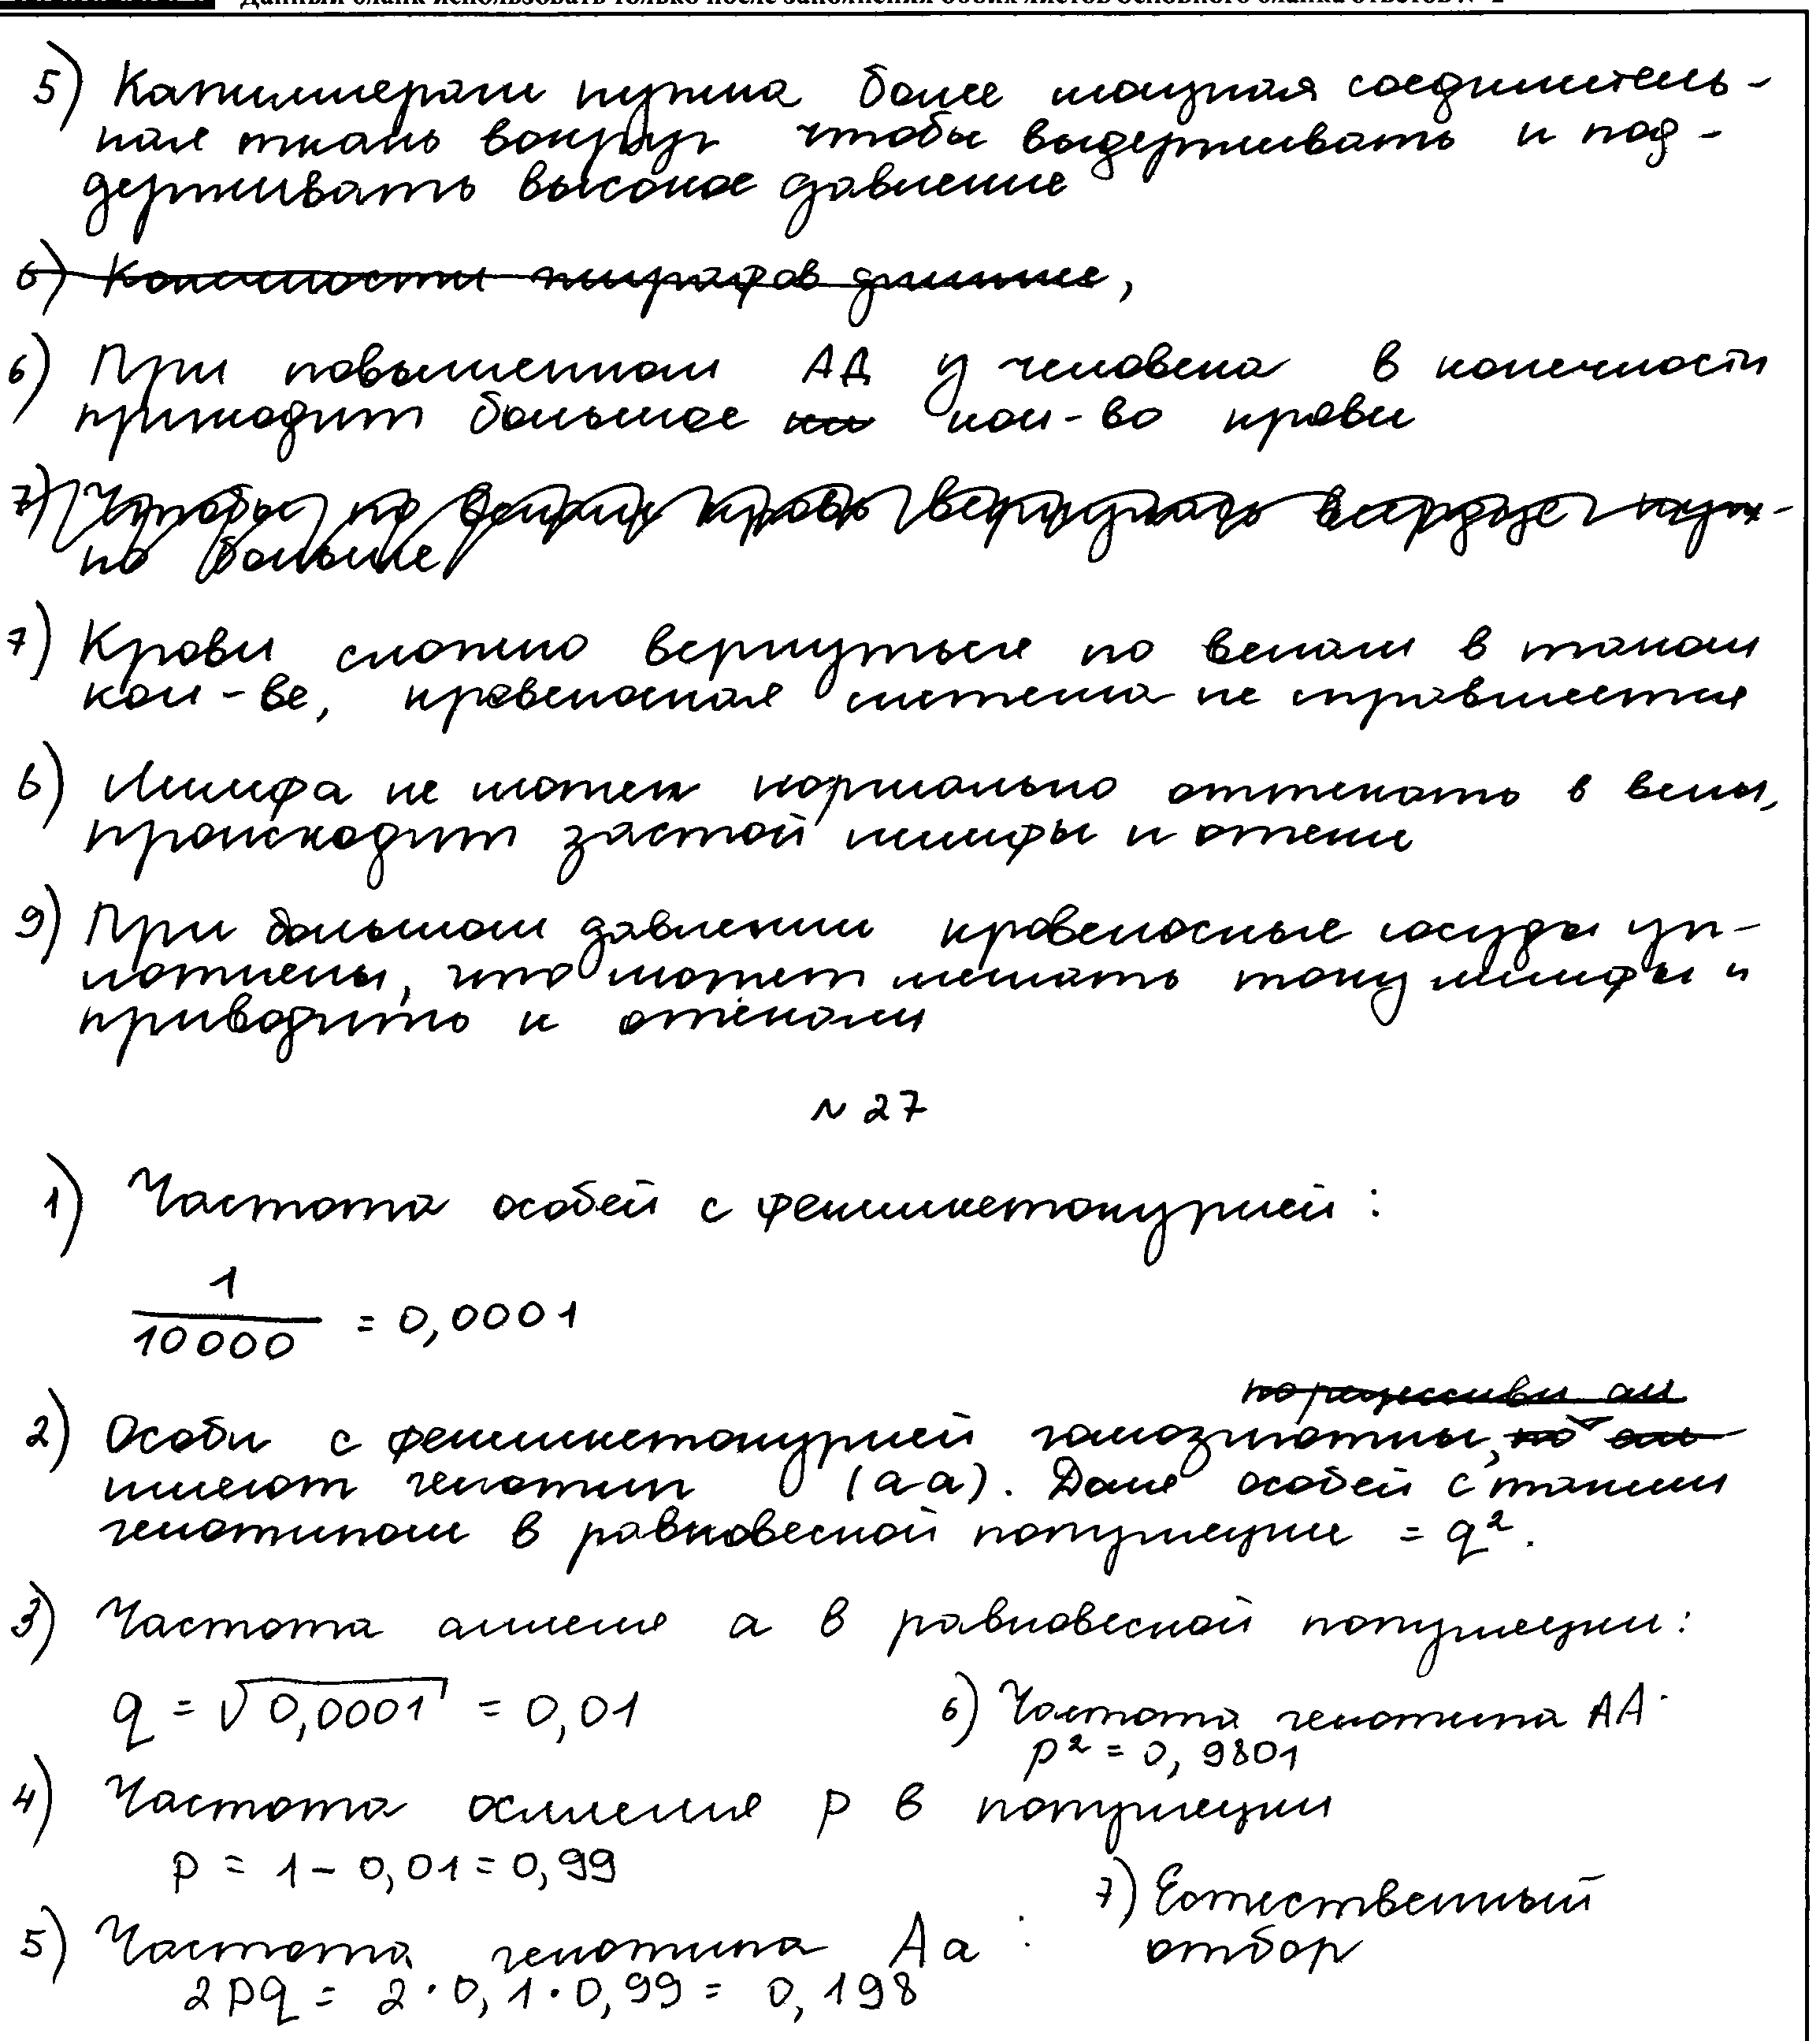 Данный бланк использовать только после заполнения обоих листов основного бланка ответов № 2
5) Капиллярам нужна более мощная соединитель-
ная ткань вокруг чтобы выдерживать и под-
держивать высокое давление
6) Конечности жирафов длинные,
6) При повышенном АД у человека в конечности
приходит большое кол-во крови
7) Чтобы по венам кровь вернулась в сердце нуж-
но больше
7) Крови сложно вернуться по венам в таком
кол-ве, кровеносная система не справляется
8) Лимфа не может нормально оттекать в вены,
происходит застой лимфы и отеки
9) При большом давлении кровеносные сосуды уп-
лотнены, что может мешать току лимфы и
приводить к отёкам
№ 27
1) Частота особей с фенилкетонурией:
1/10000 = 0,0001
по рецессивн ал
2) Особи с фенилкетонурией гомозиготны, по
имеют генотип (аа). Доля особей с таким
генотипом в равновесной популяции = q².
3) Частота аллеля а в равновесной популяции:
q = √0,0001 = 0,01
4) Частота аллеля p в популяции
p = 1 – 0,01 = 0,99
5) Частота генотипа Аа :
2pq = 2 · 0,1 · 0,99 = 0,198
6) Частота генотипа АА:
p² = 0,9801
7) Естественный
отбор